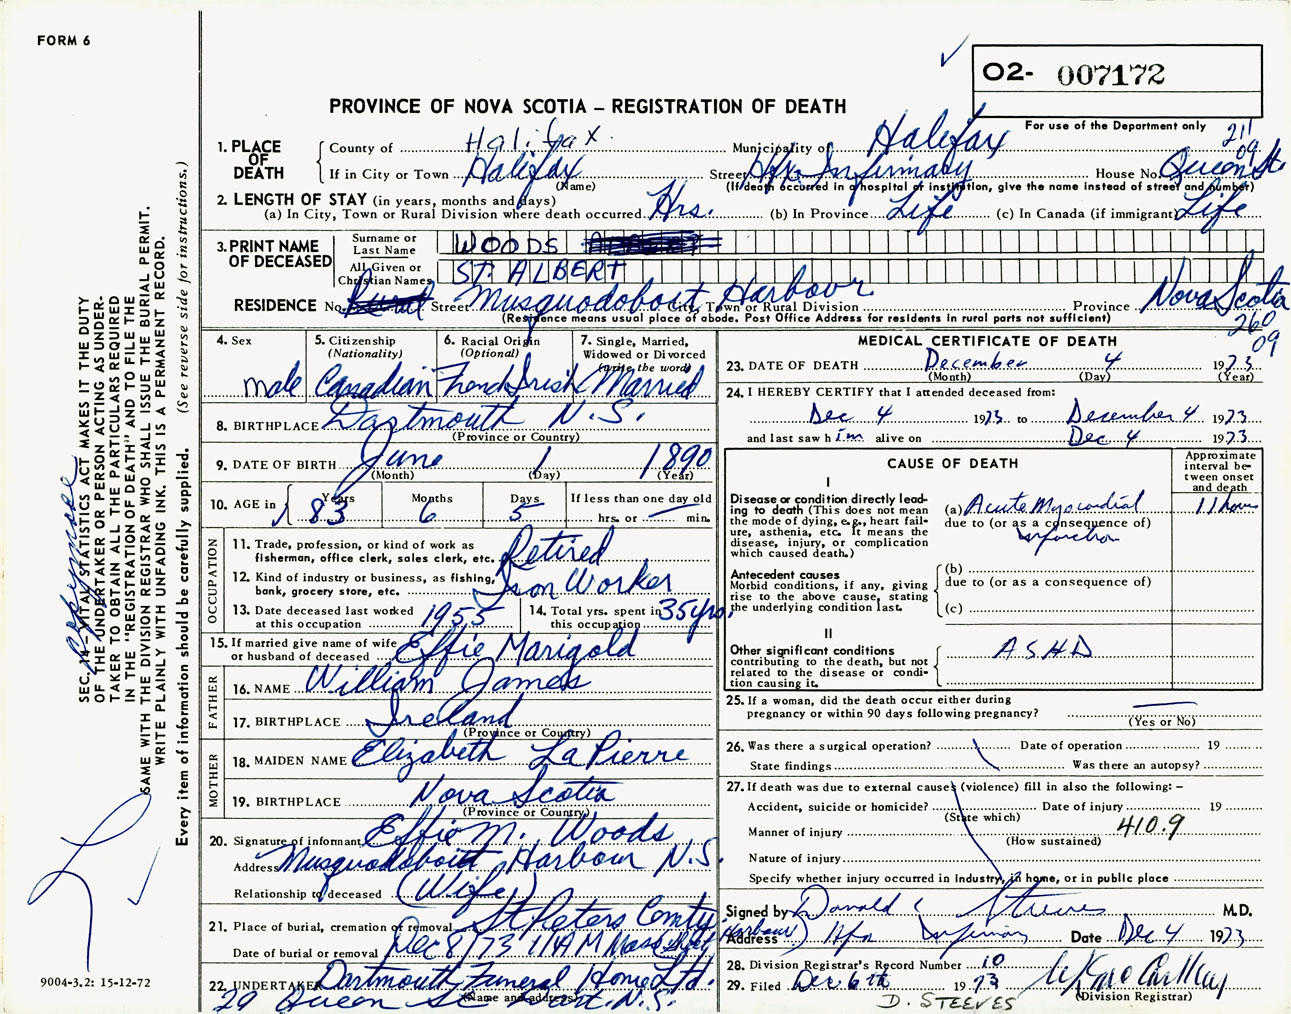 FORM 6
O2- 007172
PROVINCE OF NOVA SCOTIA – REGISTRATION OF DEATH
For use of the Department only
211
09
1. PLACE OF DEATH
County of Halifax Municipality of Halifax
If in City or Town Halifax Street Hfx. Infirmary House No. Queen St.
(Name) (If death occurred in a hospital or institution, give the name instead of street and number)
2. LENGTH OF STAY (in years, months and days)
(a) In City, Town or Rural Division where death occurred. Hrs. (b) In Province Life (c) In Canada (if immigrant) Life
3. PRINT NAME OF DECEASED
Surname or Last Name WOODS
All Given or Christian Names ST. ALBERT
RESIDENCE No. Street Musquodoboit Harbour City, Town or Rural Division Province Nova Scotia
(Residence means usual place of abode. Post Office Address for residents in rural parts not sufficient)
260
09
4. Sex male
5. Citizenship (Nationality) Canadian
6. Racial Origin (Optional) French Irish
7. Single, Married, Widowed or Divorced (write the word) Married
8. BIRTHPLACE Dartmouth N.S.
(Province or Country)
9. DATE OF BIRTH June 1 1890
(Month) (Day) (Year)
10. AGE in Years 83 Months 6 Days 5 If less than one day old hrs. or min.
OCCUPATION
11. Trade, profession, or kind of work as fisherman, office clerk, sales clerk, etc. Retired
12. Kind of industry or business, as fishing, bank, grocery store, etc. Iron Worker
13. Date deceased last worked at this occupation 1955
14. Total yrs. spent in this occupation 35 yrs.
15. If married give name of wife or husband of deceased Effie Marigold
FATHER
16. NAME William James
17. BIRTHPLACE Ireland
(Province or Country)
MOTHER
18. MAIDEN NAME Elizabeth La Pierre
19. BIRTHPLACE Nova Scotia
(Province or Country)
20. Signature of informant Effie M. Woods
Address Musquodoboit Harbour N.S.
Relationship to deceased (Wife)
21. Place of burial, cremation or removal St Peters Cemty
Date of burial or removal Dec 8/73 11 AM
22. UNDERTAKER Dartmouth Funeral Home Ltd.
29 Queen St. Dart. N.S.
(Name and address)
MEDICAL CERTIFICATE OF DEATH
23. DATE OF DEATH December 4 1973
(Month) (Day) (Year)
24. I HEREBY CERTIFY that I attended deceased from:
Dec 4 1973 to December 4 1973
and last saw him alive on Dec 4 1973
CAUSE OF DEATH
Approximate interval between onset and death
I
Disease or condition directly leading to death (This does not mean the mode of dying, e.g., heart failure, asthenia, etc. It means the disease, injury, or complication which caused death.)
(a) Acute Myocardial Infarction 11 hours
due to (or as a consequence of)
Antecedent causes
Morbid conditions, if any, giving rise to the above cause, stating the underlying condition last.
(b)
due to (or as a consequence of)
(c)
II
Other significant conditions contributing to the death, but not related to the disease or condition causing it.
ASHD
25. If a woman, did the death occur either during pregnancy or within 90 days following pregnancy?
(Yes or No)
26. Was there a surgical operation? Date of operation 19
State findings Was there an autopsy?
27. If death was due to external causes (violence) fill in also the following: –
Accident, suicide or homicide? Date of injury 19
(State which)
Manner of injury 410.9
(How sustained)
Nature of injury
Specify whether injury occurred in industry, in home, or in public place
Signed by Donald C Steeves M.D.
Harbour)
Address Hfx Infirmary Date Dec 4 1973
28. Division Registrar's Record Number 10
29. Filed Dec 6th 1973
(Division Registrar)
D. STEEVES
SEC. 14 – VITAL STATISTICS ACT MAKES IT THE DUTY
OF THE UNDERTAKER OR PERSON ACTING AS UNDER-
TAKER TO OBTAIN ALL THE PARTICULARS REQUIRED
IN THE "REGISTRATION OF DEATH" AND TO FILE THE
SAME WITH THE DIVISION REGISTRAR WHO SHALL ISSUE THE BURIAL PERMIT.
WRITE PLAINLY WITH UNFADING INK. THIS IS A PERMANENT RECORD.
Every item of information should be carefully supplied. (See reverse side for instructions.)
9004-3.2: 15-12-72